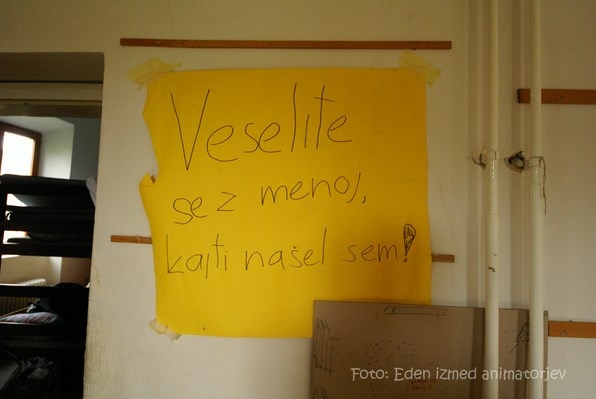 Veselite
se z menoj,
kajti našel sem!
Foto: Eden izmed animatorjev